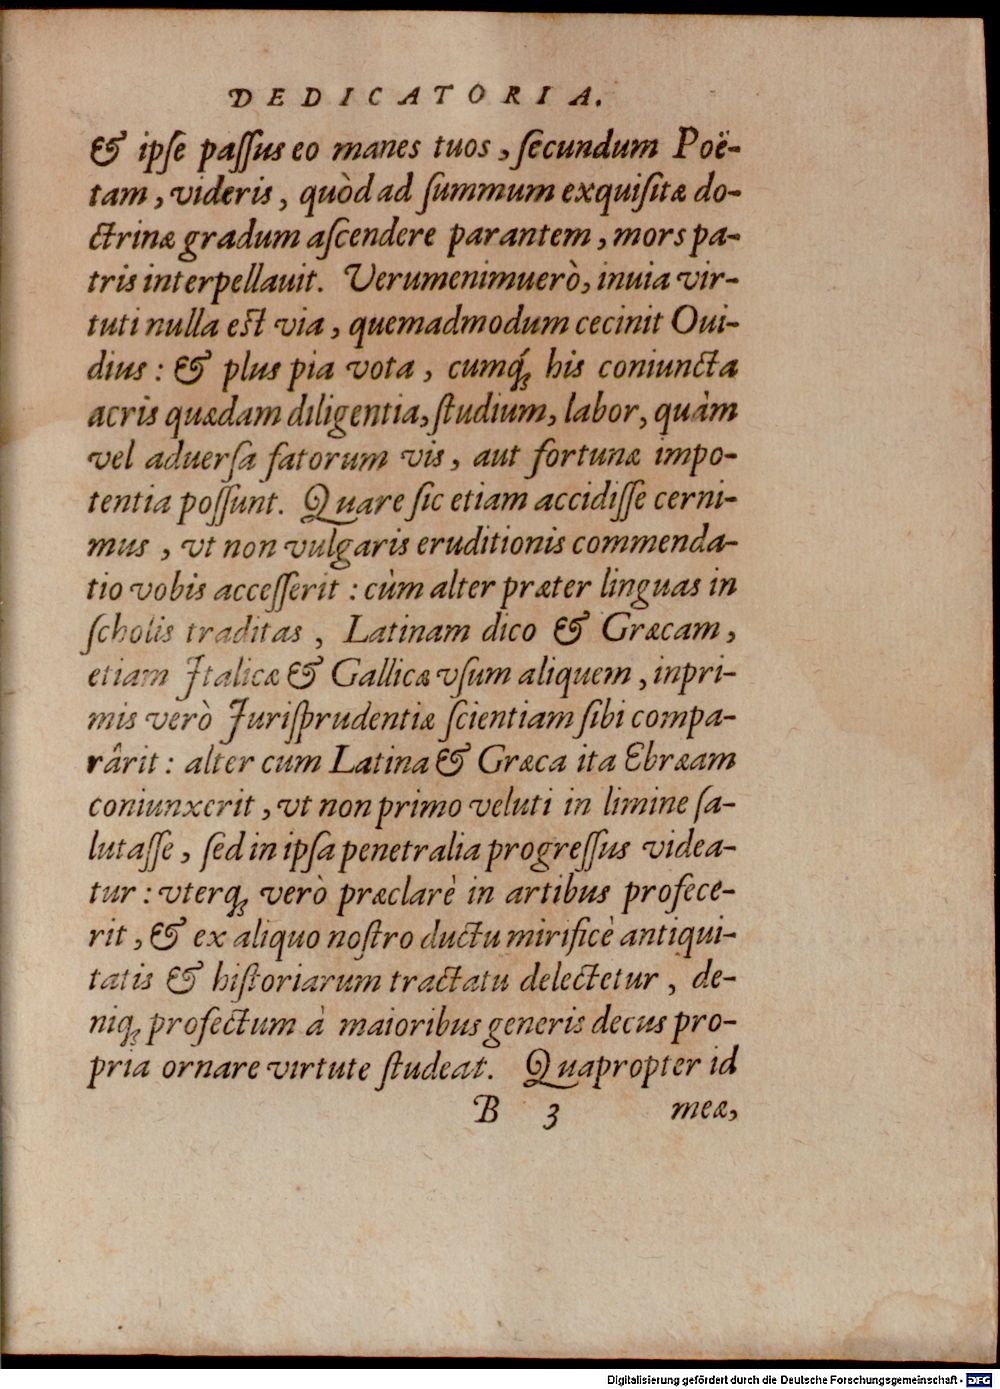 DEDICATORIA.
& ipſe paſſus eo manes tuos, ſecundum Poë-
tam, videris, quòd ad ſummum exquiſitæ do-
ctrinæ gradum aſcendere parantem, mors pa-
tris interpellauit. Verumenimuerò, inuia vir-
tuti nulla est via, quemadmodum cecinit Oui-
dius: & plus pia vota, cumq́ꝫ his coniuncta
acris quædam diligentia, ſtudium, labor, quàm
vel aduerſa fatorum vis, aut fortunæ impo-
tentia poſſunt. Quare ſic etiam accidiſſe cerni-
mus, vt non vulgaris eruditionis commenda-
tio vobis acceſſerit: cùm alter præter linguas in
ſcholis traditas, Latinam dico & Græcam,
etiam Italicæ & Gallicæ vſum aliquem, inpri-
mis verò Juriſprudentiæ ſcientiam ſibi compa-
rârit: alter cum Latina & Græca ita Ebræam
coniunxerit, vt non primo veluti in limine ſa-
lutaſſe, ſed in ipſa penetralia progreſſus videa-
tur: vterqꝫ verò præclarè in artibus profece-
rit, & ex aliquo noſtro ductu mirificè antiqui-
tatis & hiſtoriarum tractatu delectetur, de-
niqꝫ profectum à maioribus generis decus pro-
pria ornare virtute ſtudeat. Quapropter id
B 3 meæ,
Digitalisierung gefördert durch die Deutsche Forschungsgemeinschaft - DFG